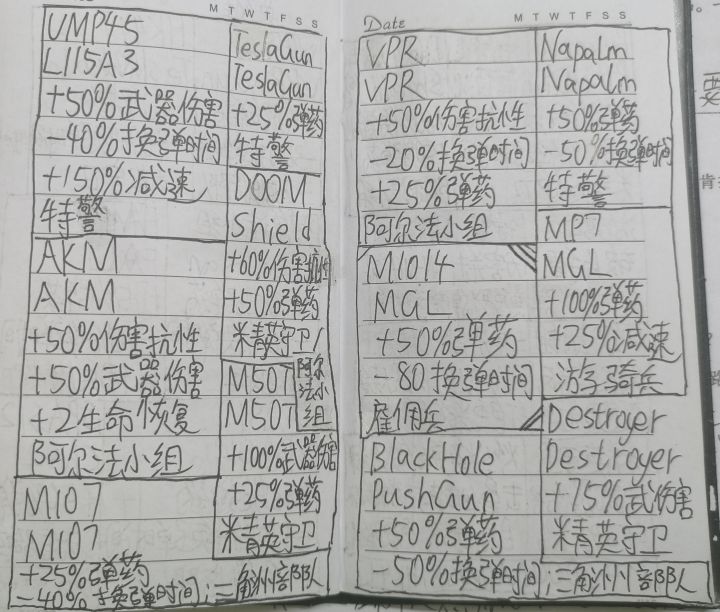 M T W T F S S
UMP45
L115A3
+50%武器伤害
-40%换弹时间
+150%减速
特警
AKM
AKM
+50%伤害抗性
+50%武器伤害
+2生命恢复
阿尔法小组
M107
M107
+25%弹药
-40%换弹时间;三角洲部队
TeslaGun
TeslaGun
+25%弹药
特警
DOOM
Shield
+60%伤害抗性
+50%弹药
精英守卫/
阿尔法小组
M507
M507
+100%武器伤害
+25%弹药
精英守卫
Date
M T W T F S S
VPR
VPR
+50%伤害抗性
-20%换弹时间
+25%弹药
阿尔法小组
M1014
MGL
+50%弹药
-80换弹时间
雇佣兵
BlackHole
PushGun
+50%弹药
-50%换弹时间;三角洲部队
Napalm
Napalm
+50%弹药
-50%换弹时间
特警
MP7
MGL
+100%弹药
+25%减速
游孚骑兵
Destroyer
Destroyer
+75%武伤害
精英守卫
要
肯